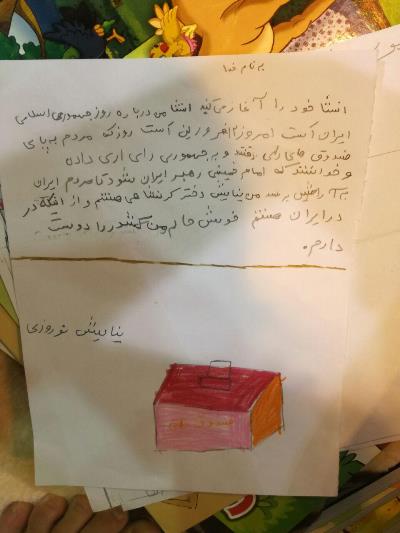 به نام خدا
انشا خود را آغاز می کنید انشا من درباره روز جمهوری اسلامی
ایران است امروز ۱۲ فرورین است روزی که مردم به پای
صندوق های رای رفتند و به جمهوری رای اری دادن
و خداستند که امام خمینی رهبر ایران بشود تا مردم ایران
به آرامش برسد من نیایش دختر کرمنشاهی هستم و از اینکه در
در ایران هستم خوش حالم من کشورم را دوست
دارم.
نیایش نوروزی
صندوق رای